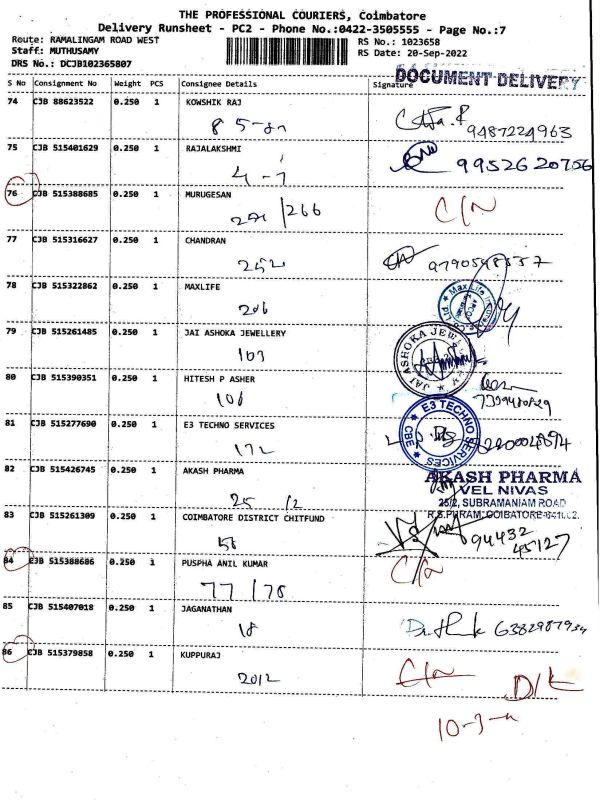 THE PROFESSIONAL COURIERS, Coimbatore
Delivery Runsheet - PC2 - Phone No.:0422-3505555 - Page No.:7
Route: RAMALINGAM ROAD WEST
Staff: MUTHUSAMY
DRS No.: DCJB102365807
RS No.: 1023658
RS Date: 20-Sep-2022
DOCUMENT DELIVERY
S No Consignment No Weight PCS Consignee Details Signature
74 CJB 88623522 0.250 1 KOWSHIK RAJ
9487224963
75 CJB 515401629 0.250 1 RAJALAKSHMI
4-7
9952620756
76 CJB 515388685 0.250 1 MURUGESAN
271/266
C/N
77 CJB 515316627 0.250 1 CHANDRAN
252
78 CJB 515322862 0.250 1 MAXLIFE
206
Max Life
79 CJB 515261485 0.250 1 JAI ASHOKA JEWELLERY
103
JAI ASHOKA JEWELLERY
80 CJB 515390351 0.250 1 HITESH P ASHER
108
81 CJB 515277690 0.250 1 E3 TECHNO SERVICES
172
E3 TECHNO SERVICES
CBE
82 CJB 515426745 0.250 1 AKASH PHARMA
25/2
AKASH PHARMA
VEL NIVAS
25/2, SUBRAMANIAM ROAD
R.S.PURAM, COIBATORE-641002.
83 CJB 515261309 0.250 1 COIMBATORE DISTRICT CHITFUND
58
94432
45127
84 CJB 515388686 0.250 1 PUSPHA ANIL KUMAR
77/78
C/N
85 CJB 515407018 0.250 1 JAGANATHAN
18
6382987934
86 CJB 515379858 0.250 1 KUPPURAJ
2012
C/N
D/L